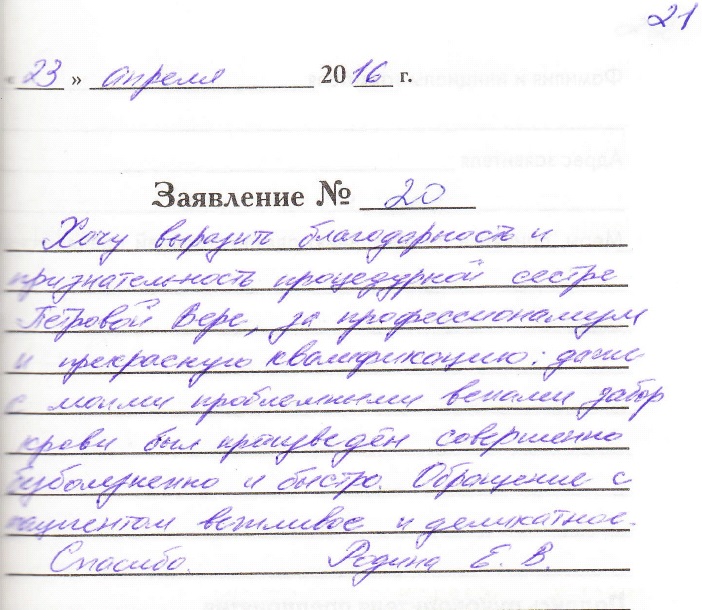 21
« 23 » апреля 2016 г.
Заявление № 20
Хочу выразить благодарность и
признательность процедурной сестре
Петровой Вере, за профессионализм
и прекрасную квалификацию: даже
с моими проблемными венами забор
крови был произведён совершенно
безболезненно и быстро. Обращение с
пациентом вежливое и деликатное.
Спасибо. Родина Е. В.